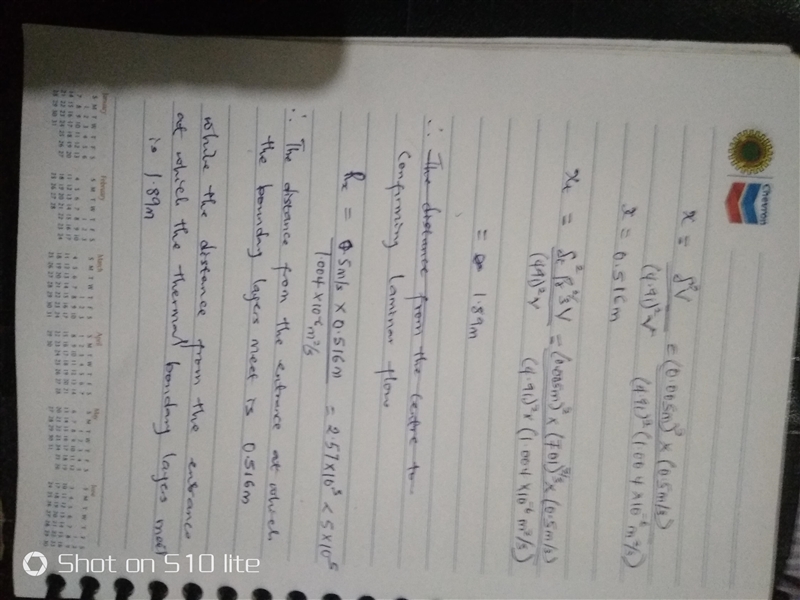 Chevron
x = δ²V / (4.91)²ν = (0.005m)² × (0.5m/s) / (4.91)² (1.004 × 10⁻⁶ m²/s)
x = 0.516m
= (0.005m)² × (7.01)^2/3 × (0.5m/s) / (4.91)² × (1.004 × 10⁻⁶ m²/s)
= 1.89m
∴ The distance from the centre to
Confirming laminar flow
= 0.5m/s × 0.516m / 1.004 × 10⁻⁶ m²/s = 2.57 × 10⁵ < 5 × 10⁵
∴ The distance from the entrance at which
the boundary layers meet is 0.516m
while the distance from the entrance
at which the thermal boundary layers meet
is 1.89m
January February March April May June
Shot on S10 lite